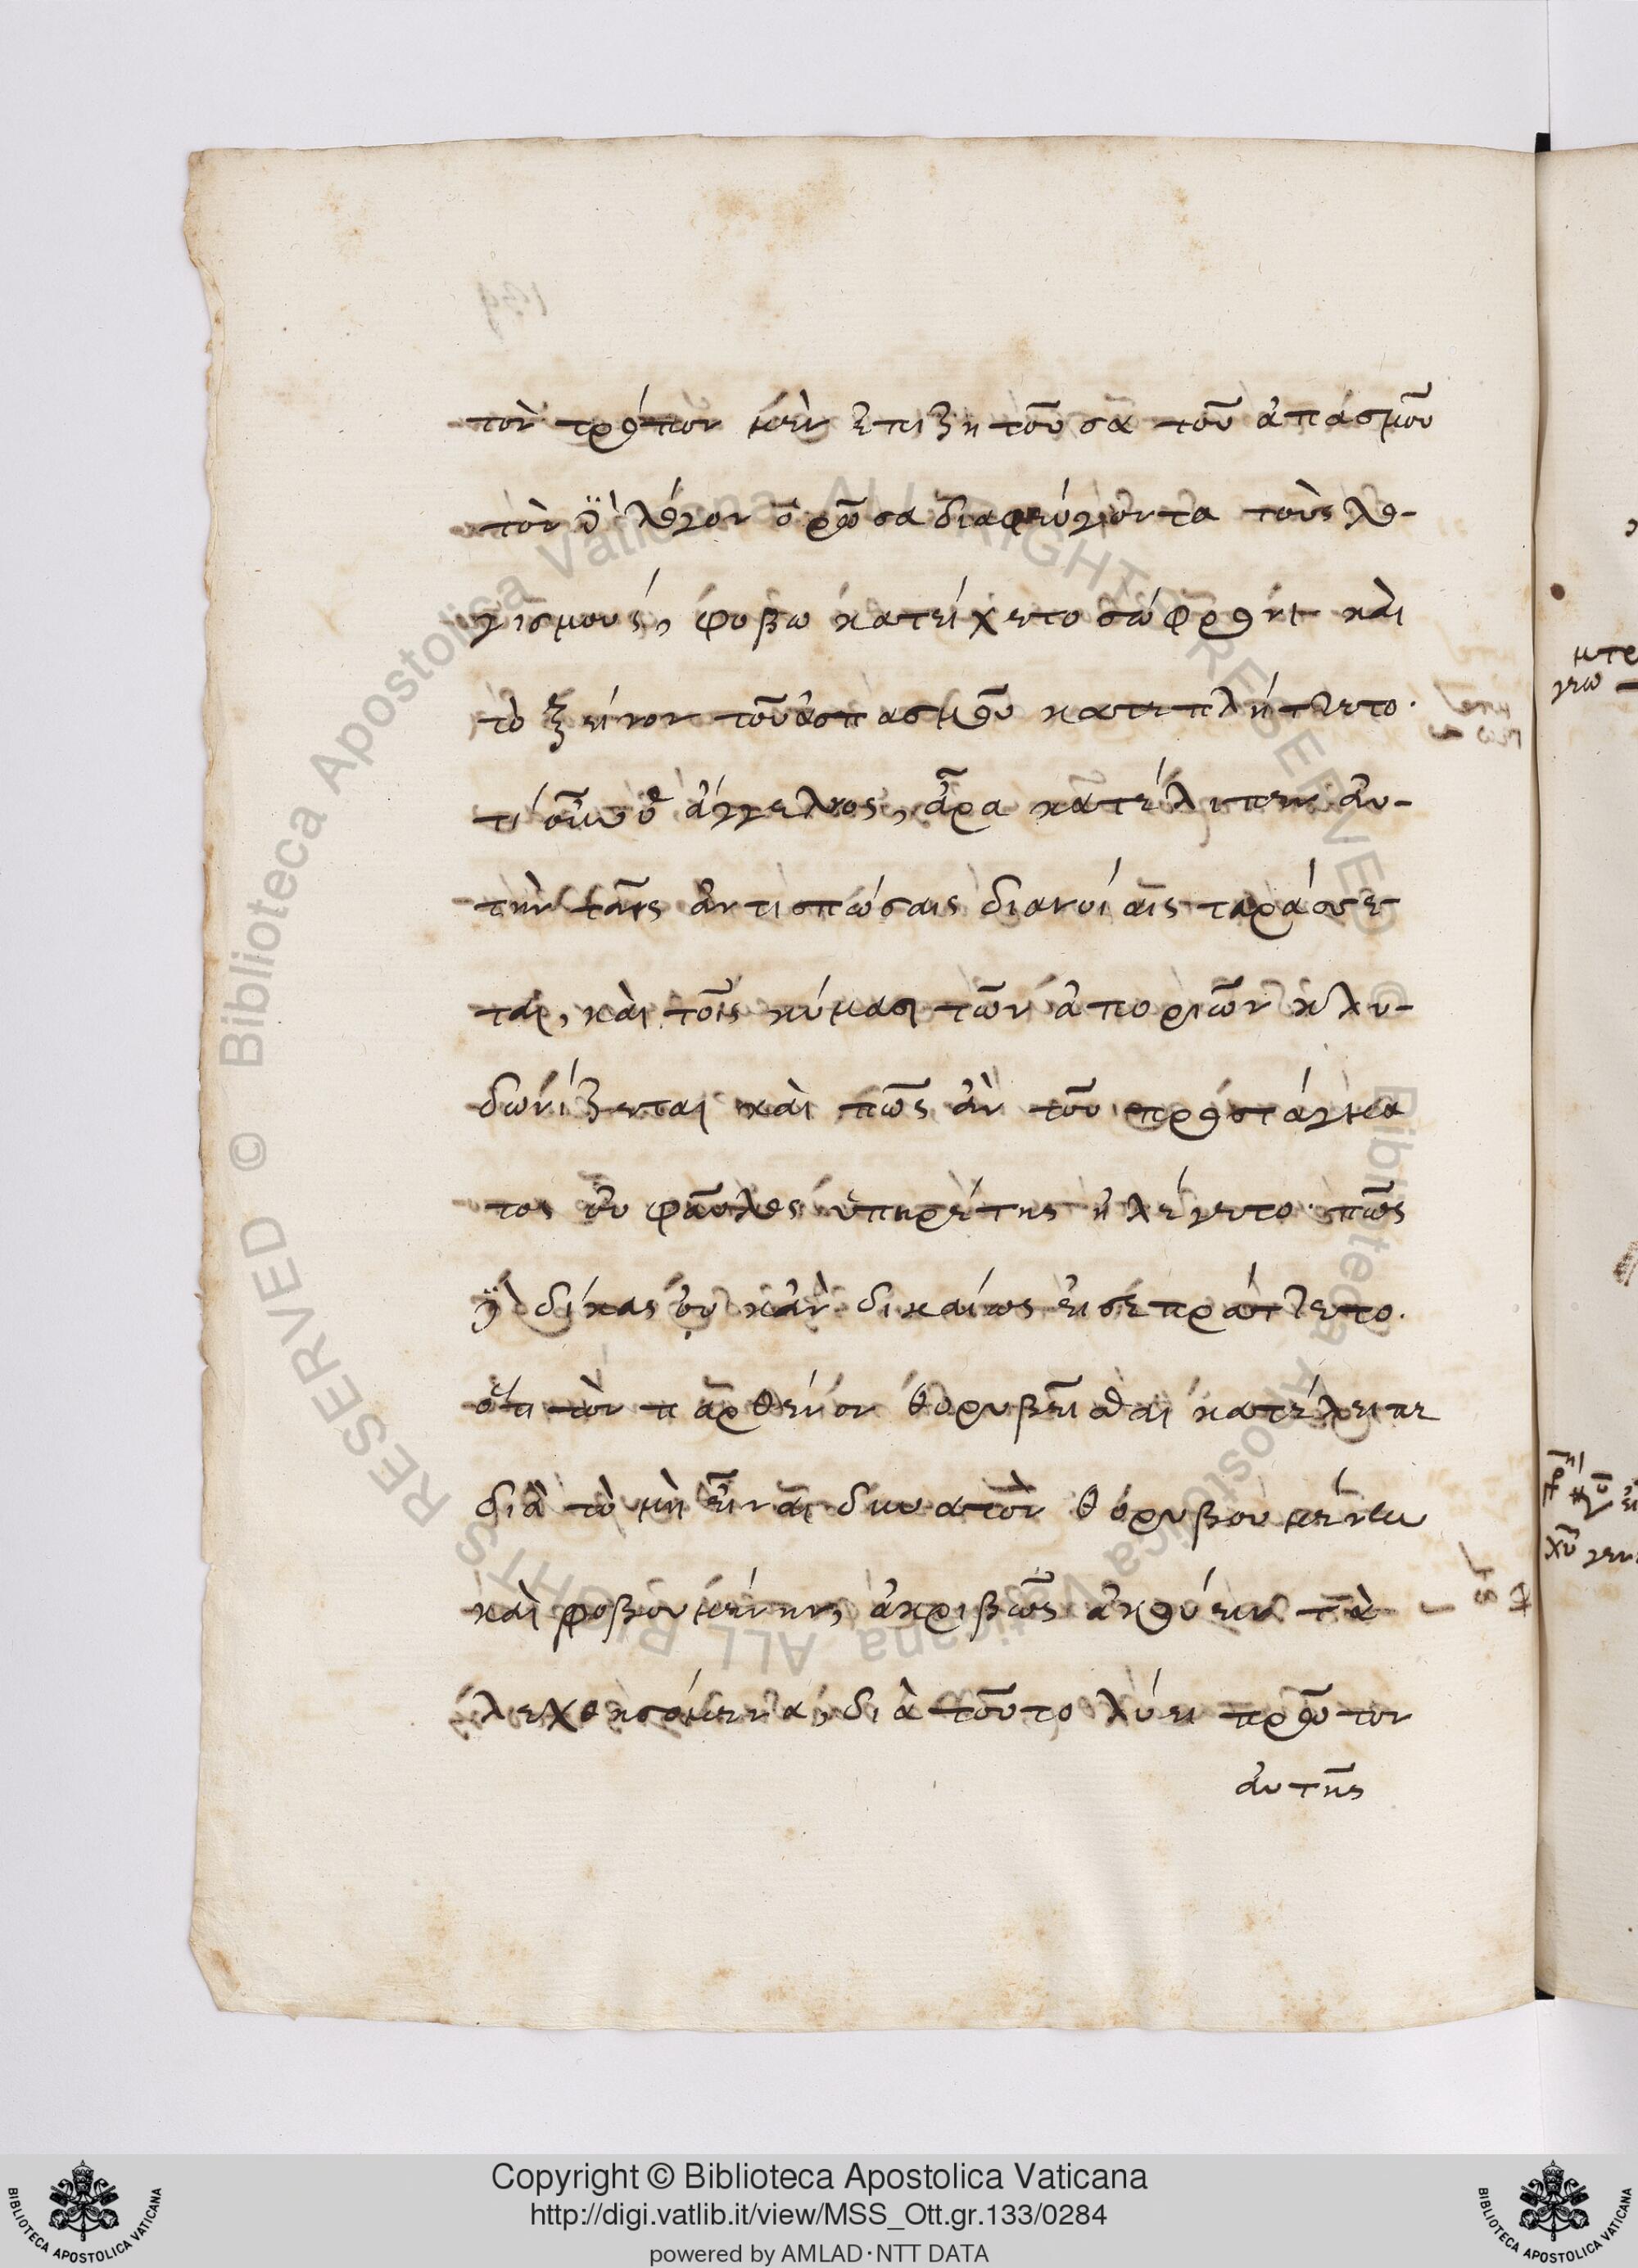 τὸν τρόπον μὲν ἐπιζητοῦσα τοῦ ἀπασμοῦ
τὸν δὲ λόγον ὁρῶσα διαφεύγοντα τοὺς λο-
γισμούς, φόβω κατείχετο σώφρονι καὶ
τὸ ξένον τοῦ ἀσπασμοῦ κατεπλήττετο.
τί οὖν ὁ ἄγγελος, ἆρα κατέλιπεν αὐ-
τὴν ταῖς ἀντισπώσαις διανοίαις ταράσσε-
ται, καὶ τοῖς κύμασι τῶν ἀποριῶν κλυ-
δωνίζεται καὶ πῶς ἂν τοῦ προστάγμα
τος οὐ φαῦλος ὑπηρέτης ἠλέγετο· πῶς
δὲ δίκας οὐκ ἂν δικαίως εἰσεπράττετο.
ὅτι τὸν παρθένον θορυβεῖσθαι κατέλειπε
διὰ τὸ μὴ εἶναι δυνατὸν θορυβουμένην
καὶ φοβουμένην, ἀκριβῶς ἀκούειν τὰ
λεχθησόμενα, διὰ τοῦτο λύει πρῶτον
αὐτῆς
Copyright © Biblioteca Apostolica Vaticana
http://digi.vatlib.it/view/MSS_Ott.gr.133/0284
powered by AMLAD·NTT DATA
BIBLIOTECA APOSTOLICA VATICANA
BIBLIOTECA APOSTOLICA VATICANA
© Biblioteca Apostolica Vaticana ALL RIGHTS RESERVED
© Biblioteca Apostolica Vaticana ALL RIGHTS RESERVED